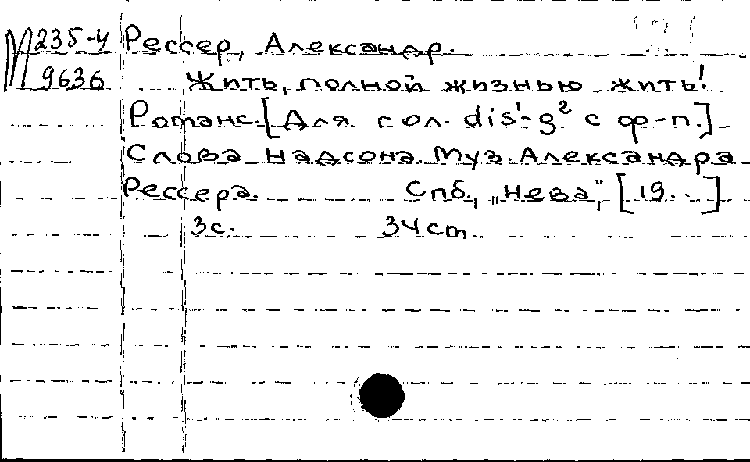 М 235-4 Рессер, Александр.
9636 Жить, полной жизнью жить!
Романс. [Для сол. dis¹-g² с ф-п.]
Слова Надсона. Муз. Александра
Рессера. Спб., „Нева", [19. . ]
3с. 34 cm.